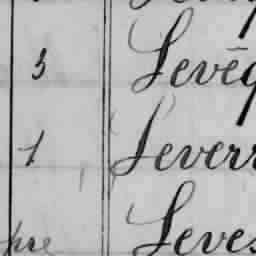 5 Levēq
1 Leverr
pre Leves